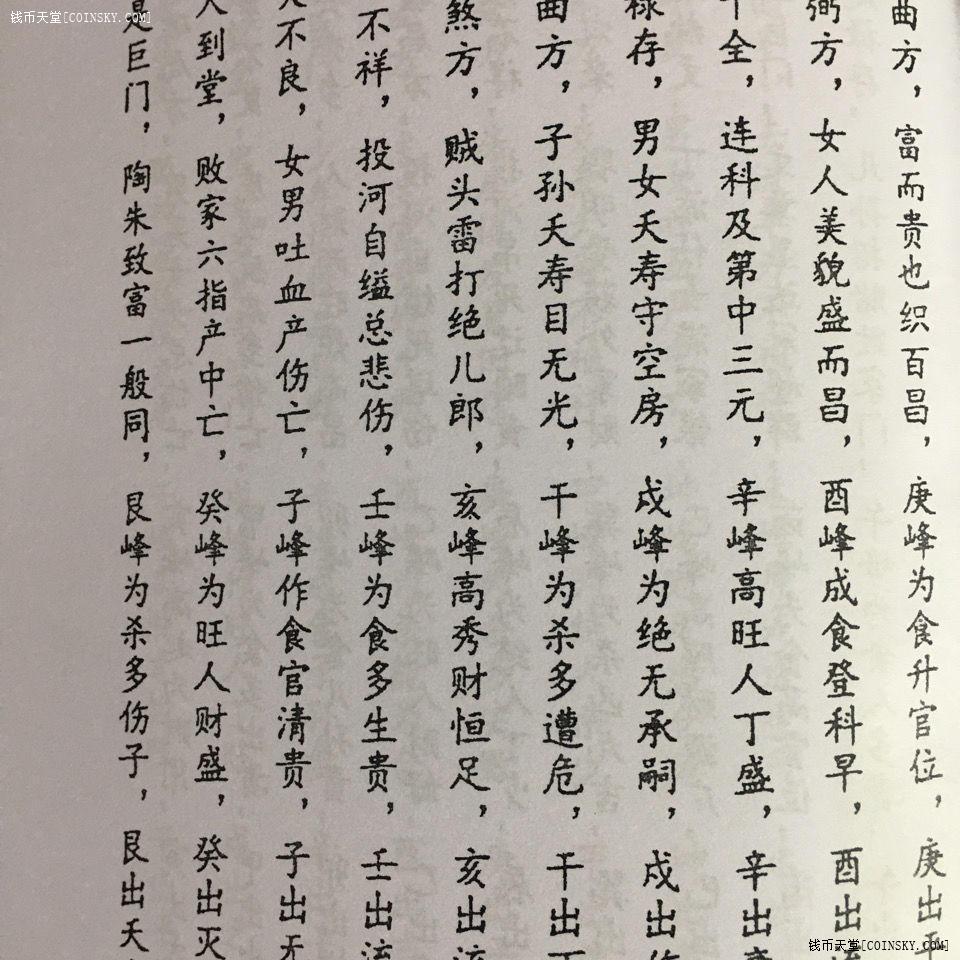 钱币天堂[COINSKY.COM]
曲方，富而贵也织百昌，庚峰为食升官位，庚出
弼方，女人美貌盛而昌，酉峰成食登科早，酉出
全，连科及第中三元，辛峰高旺人丁盛，辛出
禄存，男女夭寿守空房，戍峰为绝无承嗣，戍出
曲方，子孙夭寿目无光，干峰为杀多遭危，干出
煞方，贼头雷打绝儿郎，亥峰高秀财恒足，亥出
不祥，投河自缢总悲伤，壬峰为食多生贵，壬出
不良，女男吐血产伤亡，子峰作食官清贵，子出
人到堂，败家六指产中亡，癸峰为旺人财盛，癸出灭
是巨门，陶朱致富一般同，艮峰为杀多伤子，艮出夭
钱币天堂[COINSKY.COM]